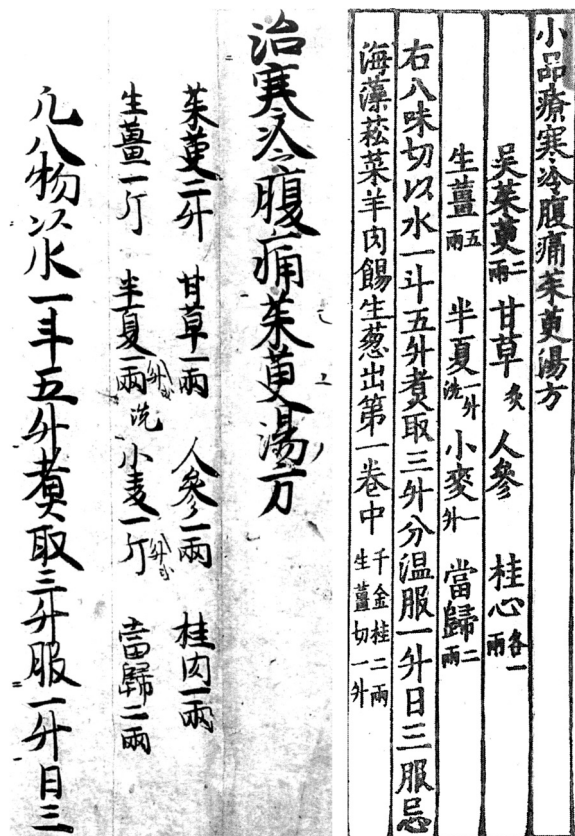 小品療寒冷腹痛茱萸湯方
吳茱萸二兩 甘草炙 人參 桂心各一兩
生薑五兩 半夏一升洗 小麥一升 當歸二兩
右八味切以水一斗五升煮取三升分温服一升日三服忌
海藻菘菜羊肉餳生葱出第一卷中千金桂二兩生薑切一升
治寒冷腹痛茱萸湯方
茱萸二升 甘草一兩 人參一兩 桂肉一兩
生薑一斤 半夏一兩洗 小麦一斤 當歸二兩
凡八物以水一斗五升煮取三升服一升日三